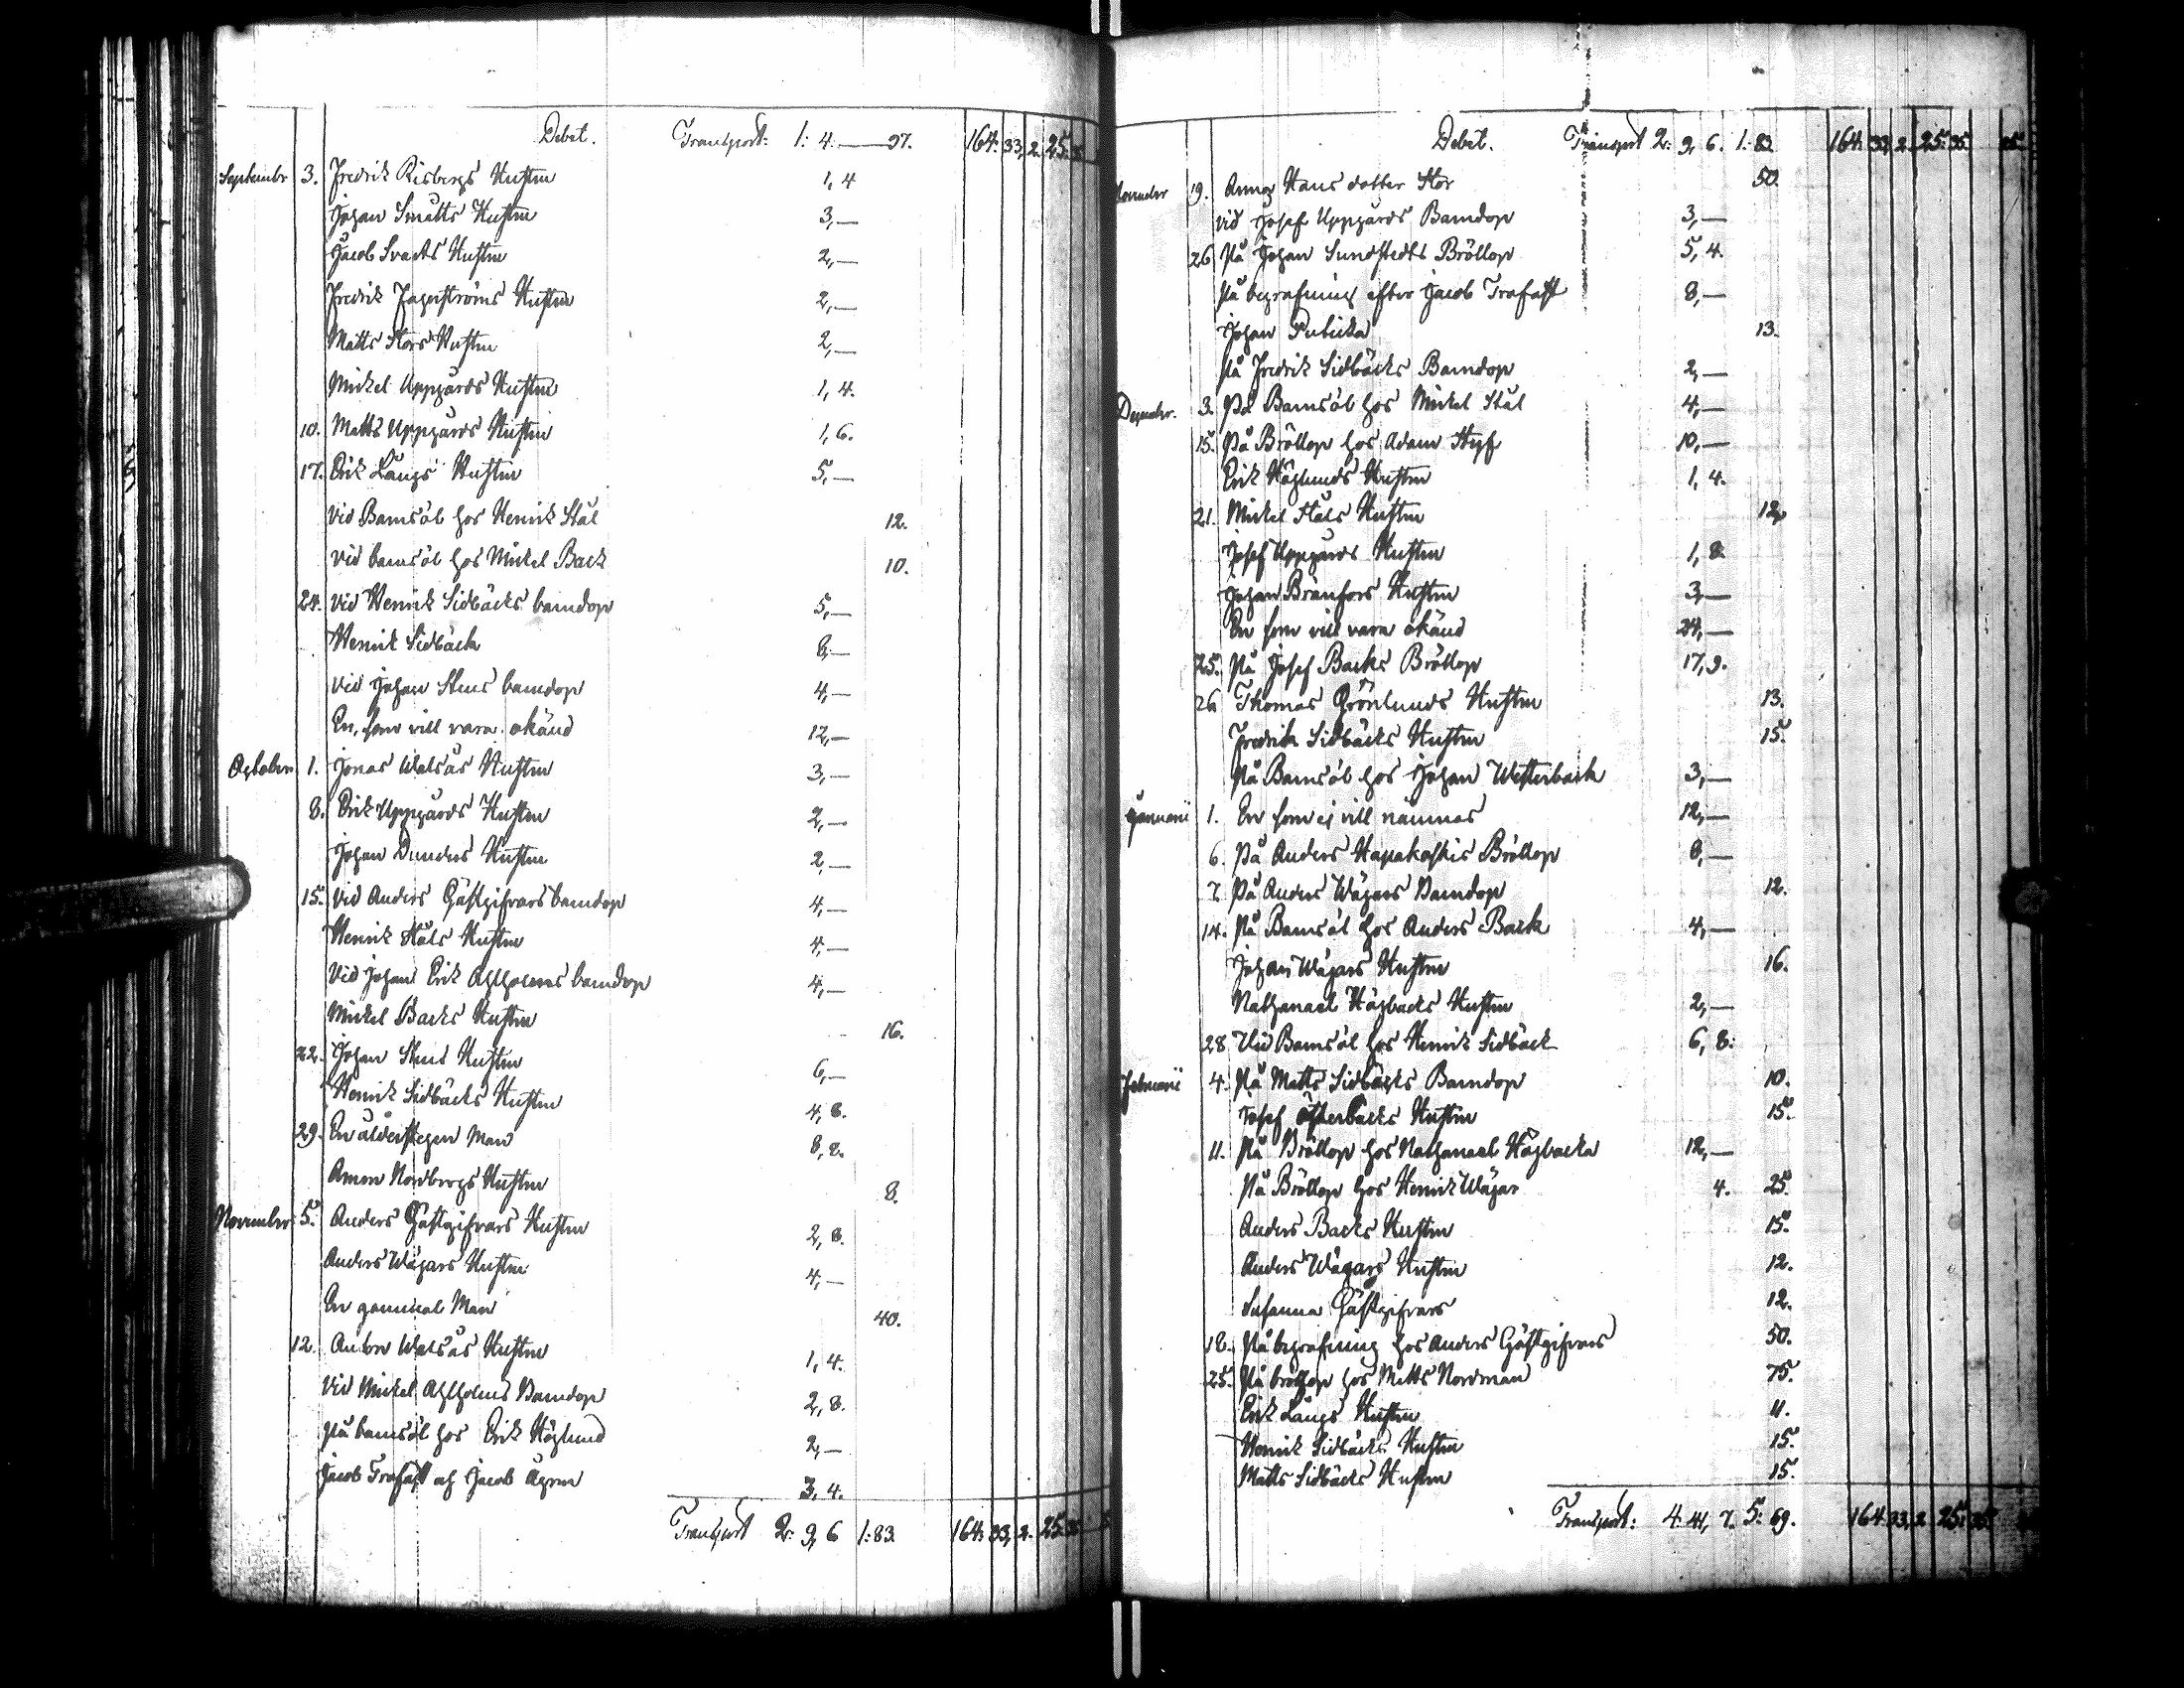 Debet. Transport: 1: 4. — 97. 164. 33, 2. 25. 35
Septembr 3. Fredrik Risbergs Hustru 1, 4
Johan Smatts Hustru 3, —
Jacob Svarts Hustru 2, —
Fredrik Fagerströms Hustru 2, —
Matts Stors Hustru 2, —
Mickel Uppgårds Hustru 1, 4.
10. Matts Uppgårds Hustru 1, 6.
17. Erik Långs Hustru 5, —
Vid Barnsöl hos Henrik Stål 12.
Vid barnsöl hos Mickel Back 10.
24. Vid Henrik Sidbäcks barndop 5, —
Henrik Sidbäck 8, —
Vid Johan Stens barndop 4, —
En, som vill vara okänd 12, —
October 1. Jonas Walsås Hustru 3, —
8. Erik Uppgårds Hustru 2, —
Johan Dunders Hustru 2, —
15. Vid Anders Gästgifvars barndop 4, —
Henrik Ståls Hustru 4, —
Vid Johan Erik Ahlholms barndop 4, —
Mickel Backs Hustru 16.
22. Johan Stens Hustru 6, —
Henrik Sidbäcks Hustru 4, 8.
29. En ålderstegen Man 8, 8.
Amon Nordbergs Hustru 8.
November 5. Anders Gästgifvars Hustru 2, 8.
Anders Wägars Hustru 4, —
En gammal Man 40.
12. Anders Walsås Hustru 1, 4.
Vid Mickel Ahlholms Barndop 2, 8.
På barnsöl hos Erik Höglund 2, —
Jacob Trofast och Jacob Ågren 3, 4.
Transport 2: 9, 6 1: 83. 164. 33, 2. 25. 35
Debet. Transport 2: 9, 6. 1: 83 164. 33, 2. 25. 35.
November 19. Anna Hans dotter Stor 50.
Vid Josef Uppgårds Barndop 3, —
26. På Johan Sundstedts Bröllop 5, 4.
På begrafning efter Jacob Trofast 8, —
Johan Pulicka 13.
På Fredrik Sidbäcks Barndop 2, —
Decembr. 3. På Barnsöl hos Mickel Stål 4, —
15. På Bröllop hos Adam Styf 10, —
Erik Höglunds Hustru 1, 4.
21. Mickel Ståls Hustru 12,
Josef Uppgårds Hustru 1, 8.
Johan Brännfors Hustru 3, —
En som vill vara okänd 24, —
25. På Josef Backs Bröllop 17, 9.
26. Thomas Grönlunds Hustru 13.
Fredrik Sidbäcks Hustru 15.
På Barnsöl hos Johan Westerback 3, —
Januarii 1. En som ej vill nämnas 12, —
6. På Anders Hapakoskis Bröllop 8, —
7. På Anders Wägars Barndop 12.
14. På Barnsöl hos Anders Back 4, —
Johan Wägars Hustru 16.
Nathanael Högbacks Hustru 2, —
28 Vid Barnsöl hos Henrik Sidbäck 6, 8.
Februarii 4. På Matts Sidbäcks Barndop 10.
Josef Österbacks Hustru 15.
11. På Bröllop hos Nathanael Högbacka 12, —
På Bröllop hos Henrik Wägar 4. 25.
Anders Backs Hustru 15.
Anders Wägars Hustru 12.
Susanna Gästgifvars 12.
18. På begrafning hos Anders Gästgifvars 50.
25. På bröllop hos Matts Nordman 75.
Erik Långs Hustru 11.
Henrik Sidbäcks Hustru 15.
Matts Sidbäcks Hustru 15.
Transport: 4. 41, 7. 5: 69. 164. 33, 2. 25. 35.